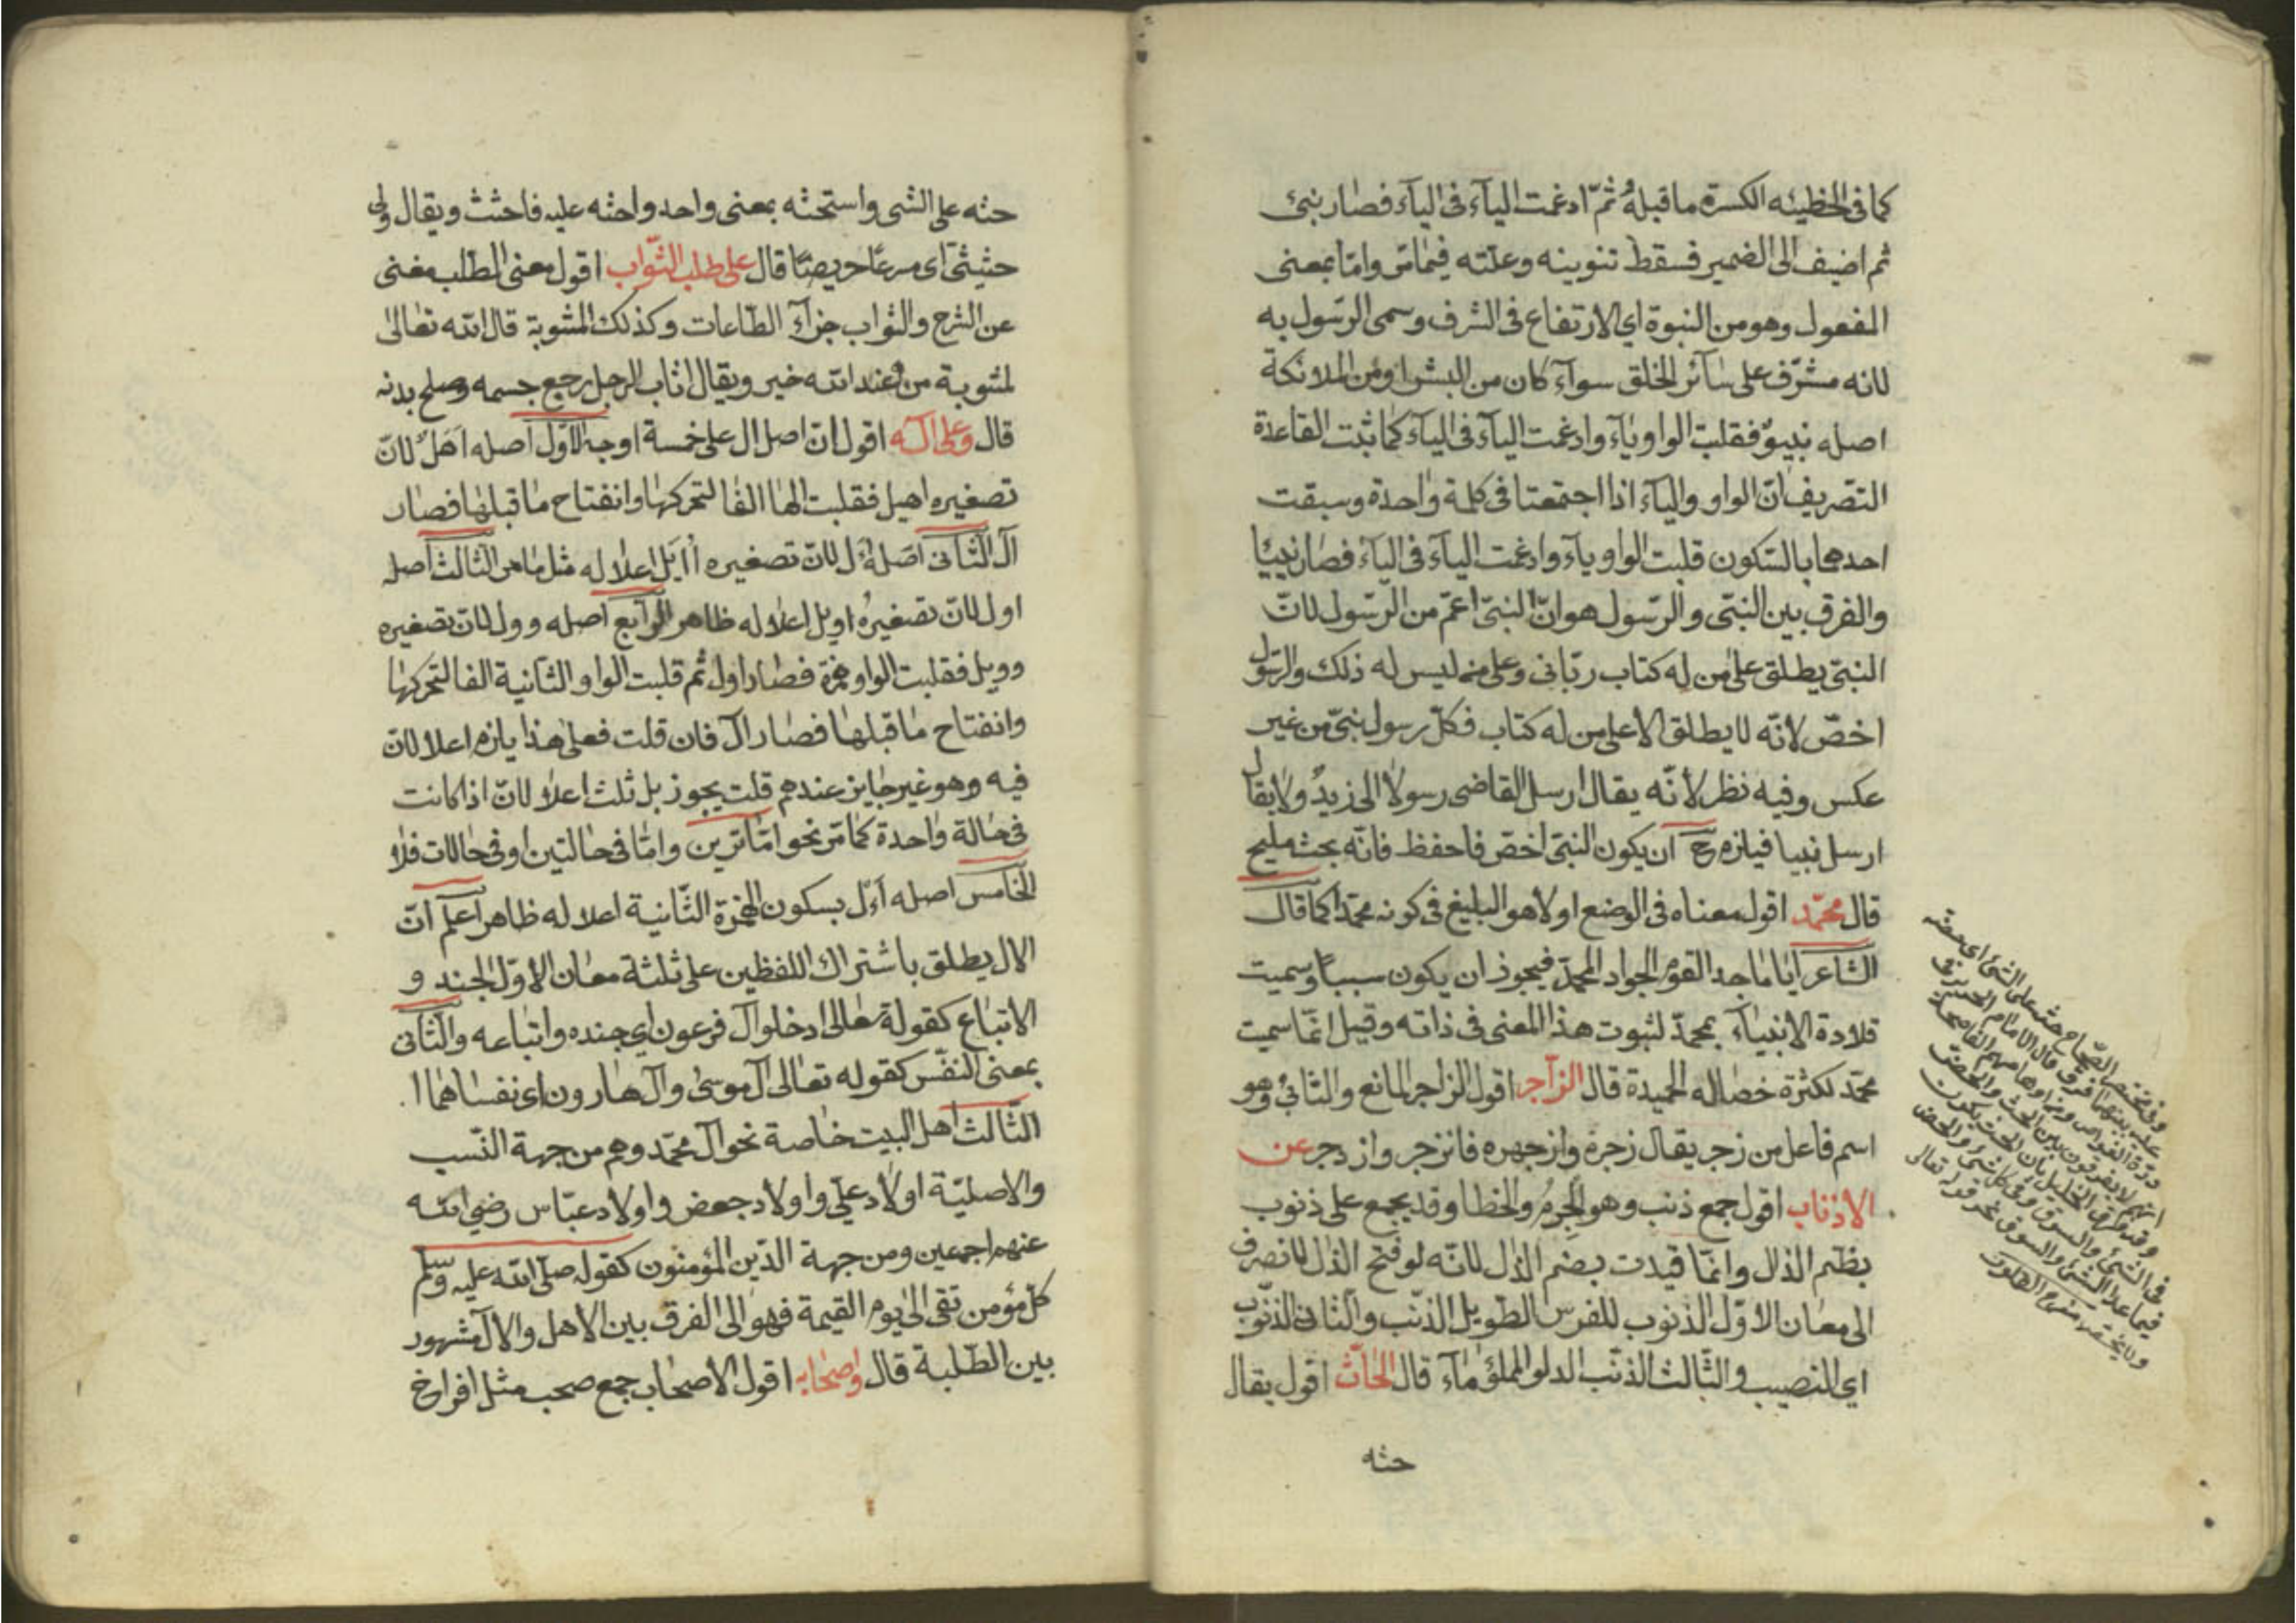 كما فى الخطيئه الكسرة ماقبله ثمّ ادغمت اليآء فى اليآء فصار نبىّ
ثم اضيف الى الضمير فسقط تنوينه وعلته فيمامرّ وامّا بمعنى
المفعول وهو من النبوة اي الارتفاع فى الشرف وسمى الرّسول به
لانه مشرّف على سآئر الخلق سوآء كان من البشر او من الملائكة
اصله نبيوٌ فقلبت الواو يآء وادغمت اليآء فى اليآء كما ثبت القاعدة
التصريف انّ الواو واليآء اذا اجتمعتا فى كلمة واحدة وسبقت
احدهما بالسّكون قلبت الواو يآء وادغمت اليآء فى اليآء فصار نبييا
والفرق بين النبىّ والرّسول هو انّ النبىّ اعمّ من الرّسول لانّ
النبىّ يطلق على من له كتاب ربّانى وعلى من ليس له ذلك والرّسول
اخصّ لانّه لا يطلق الا على من له كتاب فكلّ رسول نبىّ من غير
عكس وفيه نظر لأنّه يقال ارسل القاضى رسولا الى زيدٍ ولا يقال
ارسل نبيا فيلزم ح آن يكون النبىّ اخصّ فاحفظ فانّه بحث مليح
قال محمّد اقول معناه فى الوضع اولا هو البليغ فى كونه محمّدا كما قال
الشاعر ايا ماجد القوم الجواد المحمّد فيجوز ان يكون سببا وسميت
قلادة الانبيآء بمحمدّ لثبوت هذا المعنى فى ذاته وقيل انمّا سميت
محمّد لكثرة خصاله الحميدة قال الزّاجر اقول الزاجر المانع والثانىُ وهو
اسم فاعل من زجر يقال زجره وازجهره فانزجر وازدجر عن
الاذناب اقول جمع ذنب وهو الجرمُ والخطا وقد يجمع على ذنوب
بظم الذال وانمّا قيدت بضم الذال لانّه لو فتح الذال لانصرف
الى معان الاوّل الذنوب للفرس الطويل الذنب والثانى الذنوب
اي النصيب والثّالث الذنب الدلو المملؤ مآء قال الحاثّ اقول يقال
حثه
وفى مختصر الصّحاح حثه على الشىء اى حضّه
درّة الغواص
فى الشئ والسوق وفى كل شئ والحض
فيما عدا الشئ والسوق نحو قوله تعالى
حثه على الشى واستحثه بمعنى واحد واحثه عليه فاحتث ويقال ولى
حثيثى اى مسرعًا حريصًا قال على طلب الثّواب اقول معنى الطلب مغنى
عن الشرح والثواب جزآء الطّاعات وكذلك المثوبة قال الله تعالى
لمثوبة من عند الله خير ويقال اثاب الرجل رجع جسمه وصلح بدنه
قال وعلى آله اقول انّ اصل ال على خمسة اوجه الاوّل اصله اَهَلٌ لانّ
تصغيره اهيل فقلبت الها الفا لتحركها وانفتاح ماقبلها فصار
آل الثّانى اصله أَلَ لانّ تصغيره أُأيَل اعلاله مثل مامر الثالث اصله
اول لان تصغيره اويل اعلاله ظاهر الرّابع اصله وول لانّ تصغيره
وويل فقلبت الواو همزة فصار اول ثم قلبت الواو الثانية الفا لتحركها
وانفتاح ماقبلها فصار آل فان قلت فعلى هذا يلزم اعلالان
فيه وهو غير جايز عندهم قلت يجوز بل ثلث اعلالانّ اذا كانت
فى حالة واحدة كما مرّ نحو امّا ترين وامّا فى حالتين او فى حالات فلا
الخامس اصله أءل بسكون الهمزة الثّانية اعلاله ظاهر اعلم انّ
الال يطلق باشتراك اللفظين على ثلثة معان الاوّل الجند و
الاتباع كقولة تعالى ادخلوا آل فرعون اى جنده واتباعه والثانى
بمعنى النفس كقوله تعالى آل موسى وآل هارون اى نفساهما
الثّالث اهل البيت خاصة نحو آل محمّد وهم من جهة النّسب
والاصليّة اولاد عليّ واولاد جعفر واولاد عبّاس رضي الله
عنهم اجمعين ومن جهة الدّين المؤمنون كقوله صلّى الله عليه وسلم
كلّ مؤمن تقى الى يوم القيمة فهو الى الفرق بين الاهل والال مشهور
بين الطّلبة قال واصحابه اقول الاصحاب جمع صحب مثل افراخ